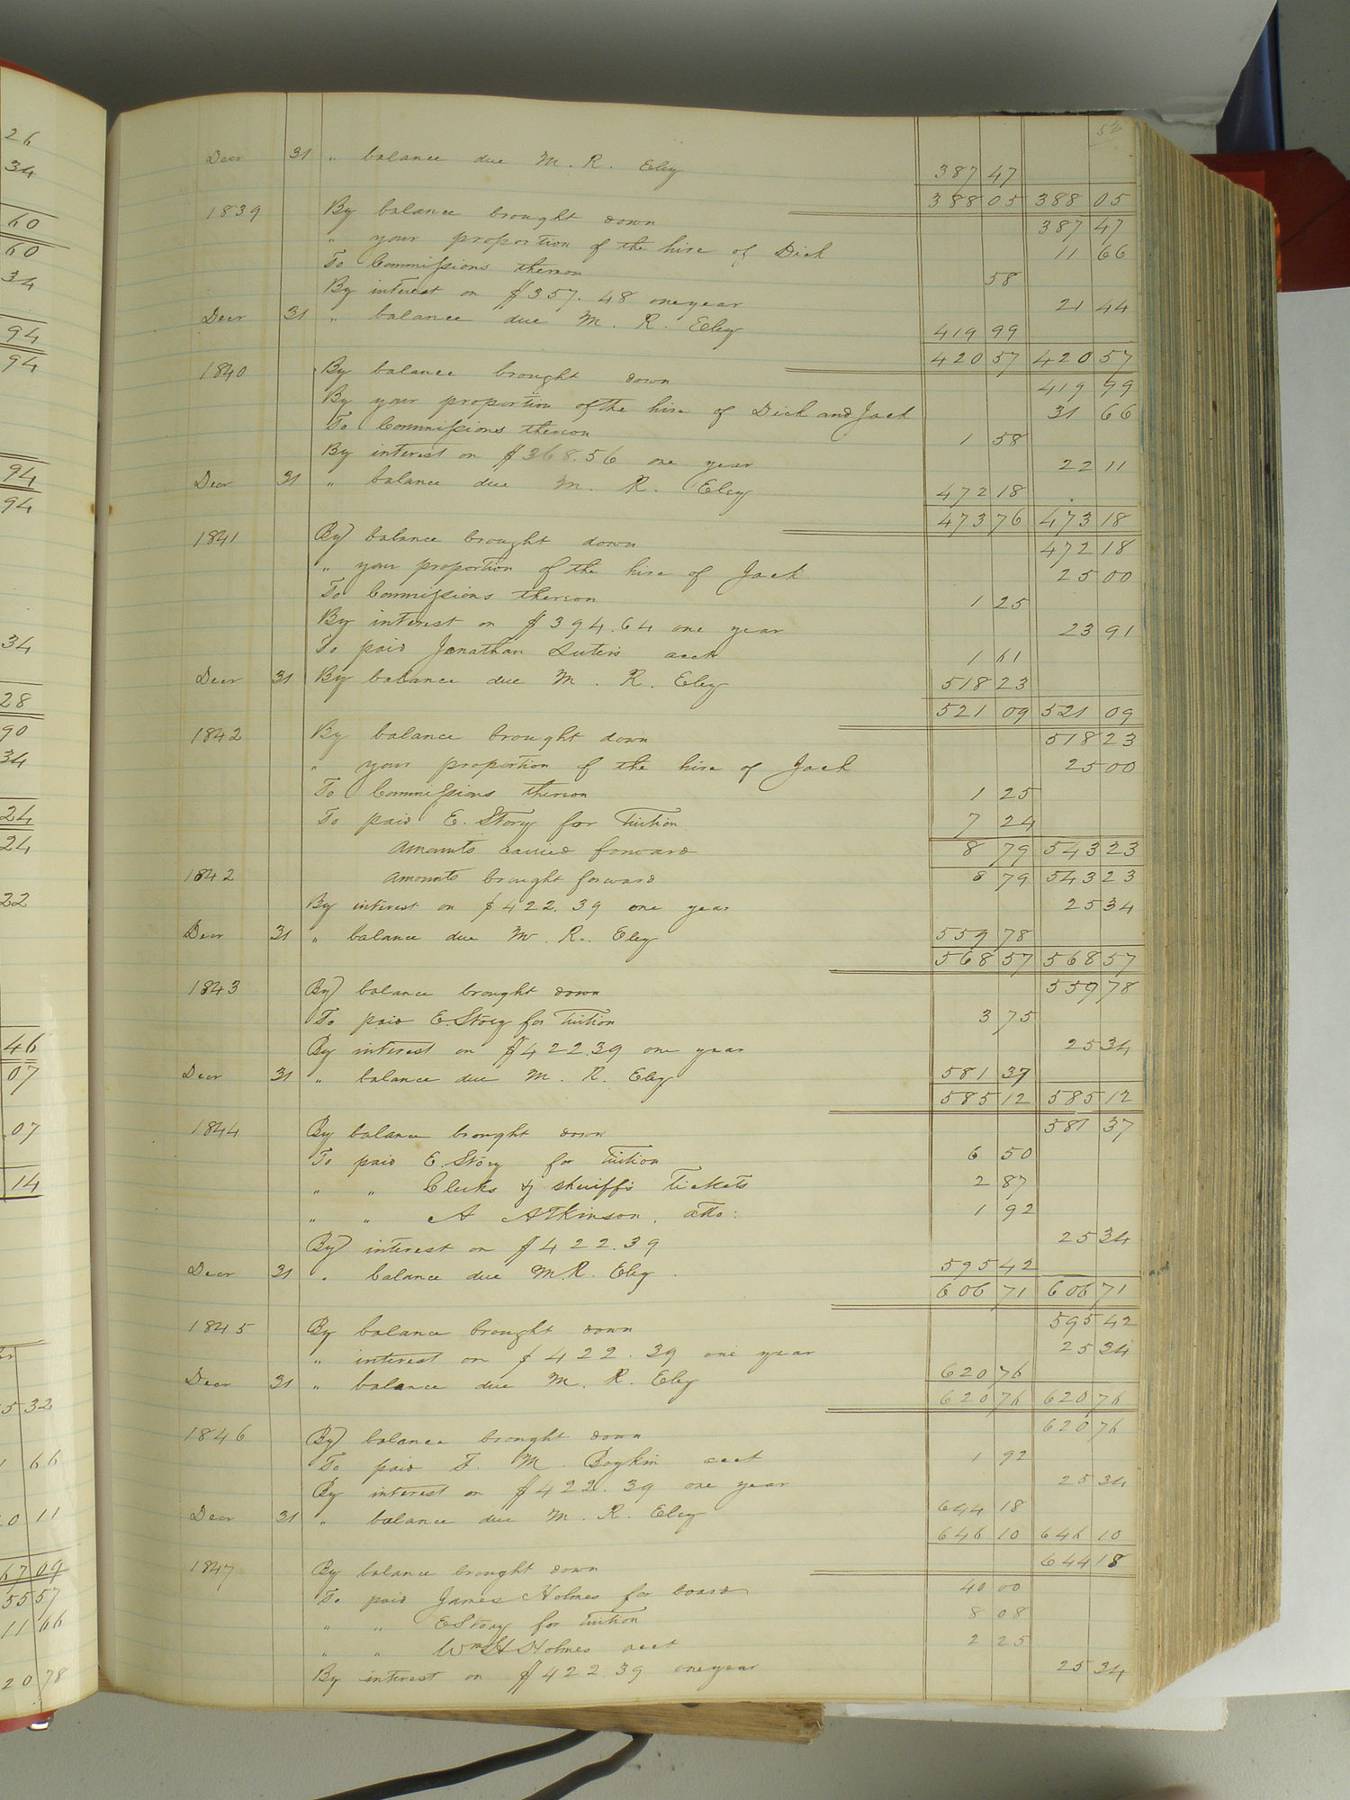 Decr 31 " balance due M. R. Eley 387 47
388 05 388 05
1839 By balance brought down 387 47
" your proportion of the hire of Dick 11 66
To Commissions thereon 58
By interest on $357.48 one year 21 44
Decr 31 " balance due M. R. Eley 419 99
420 57 420 57
1840 By balance brought down 419 99
By your proportion of the hire of Dick and Jack 31 66
To Commissions thereon 1 58
By interest on $368.56 one year 22 11
Decr 31 " balance due M. R. Eley 472 18
473 76 473 18
1841 By balance brought down 472 18
" your proportion of the hire of Jack 25 00
To Commissions thereon 1 25
By interest on $394.64 one year 23 91
To paid Jonathan acct 1 61
Decr 31 By balance due M. R. Eley 518 23
521 09 521 09
1842 By balance brought down 518 23
" your proportion of the hire of Jack 25 00
To Commissions thereon 1 25
To paid E. Story for Tuition 7 24
Amounts carried forward 8 79 543 23
1842 Amounts brought forward 8 79 543 23
By interest on $422.39 one year 25 34
Decr 31 " balance due M. R. Eley 559 78
568 57 568 57
1843 By balance brought down 559 78
To paid E. Story for Tuition 3 75
By interest on $422.39 one year 25 34
Decr 31 " balance due M. R. Eley 581 37
585 12 585 12
1844 By balance brought down 581 37
To paid E. Story for Tuition 6 50
" " Clerks & Sheriffs Tickets 2 87
" " A Atkinson. atto: 1 92
By interest on $422.39 25 34
Decr 31 " balance due M. R. Eley. 595 42
606 71 606 71
1845 By balance brought down 595 42
" interest on $422.39 one year 25 34
Decr 31 " balance due M. R. Eley 620 76
620 76 620 76
1846 By balance brought down 620 76
To paid F. M. Boykin acct 1 92
By interest on $422.39 one year 25 34
Decr 31 " balance due M. R. Eley 644 18
646 10 646 10
1847 By balance brought down 644 18
To paid James Holmes for board 40 00
" " E Story for Tuition 8 08
" " Wm H Holmes acct 2 25
By interest on $422.39 one year 25 34